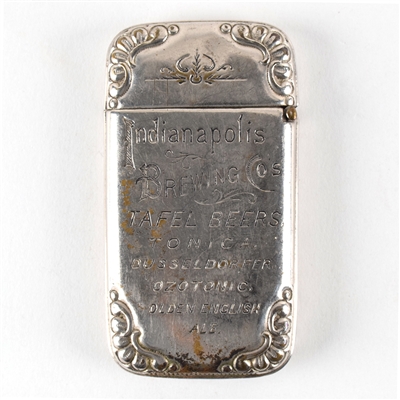 Indianapolis
Brewing Co's
TAFEL BEERS
TONICA
DUSSELDORFER
OZOTONIC.
GOLDEN ENGLISH
ALE